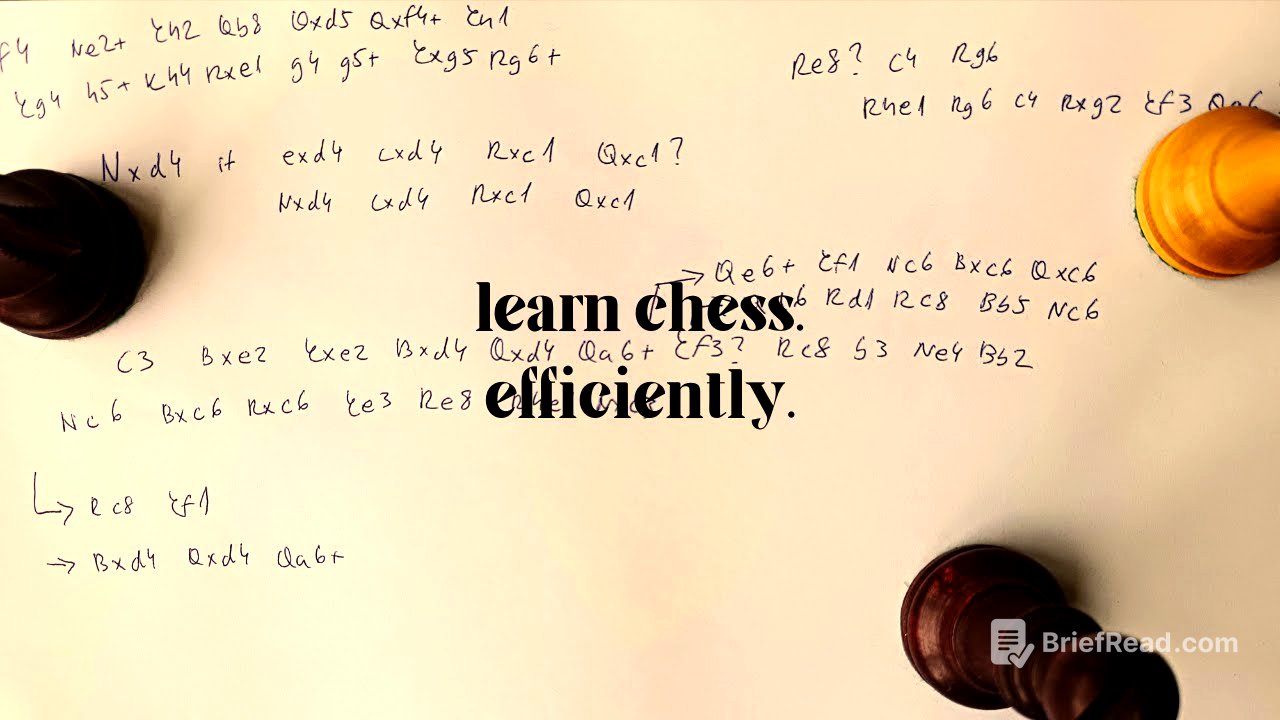 f4 Ne2+ Kh2 Qb8 Qxd5 Qxf4+ Kh1
Kg4 h5+ Kh4 Rxe1 g4 g5+ Kxg5 Rg6+
Re8? c4 Rg6
Rhe1 Rg6 c4 Rxg2 Kf3 Qa6
Nxd4 if exd4 cxd4 Rxc1 Qxc1?
Nxd4 cxd4 Rxc1 Qxc1
→ Qe6+ Kf1 Nc6 Bxc6 Qxc6
Rd1 Rc8 Bb5 Nc6
learn chess.
c3 Bxe2 Kxe2 Bxd4 Qxd4 Qa6+ Kf3? Rc8 b3 Ne4 Bb2
efficiently.
Nc6 Bxc6 Rxc6 Ke3 Re8
→ Rc8 Kf1
→ Bxd4 Qxd4 Qa6+
BriefRead.com